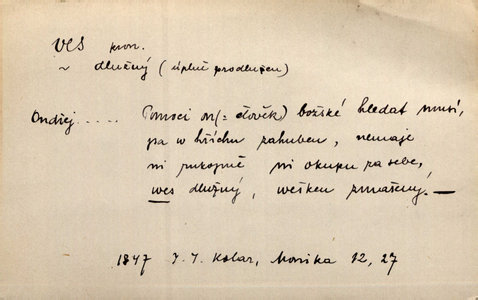 VES pron.
~ dlužný (úplně prodlužen)
Ondřej..... Pomoci on (= člověk) božské hledat musí,
pa w hříchu zahuben, nemaje
ni rukojmě ni okupu za sebe,
wes dlužný, wešken zmařený! —
1847 J. J. Kolar, Monika 12, 27